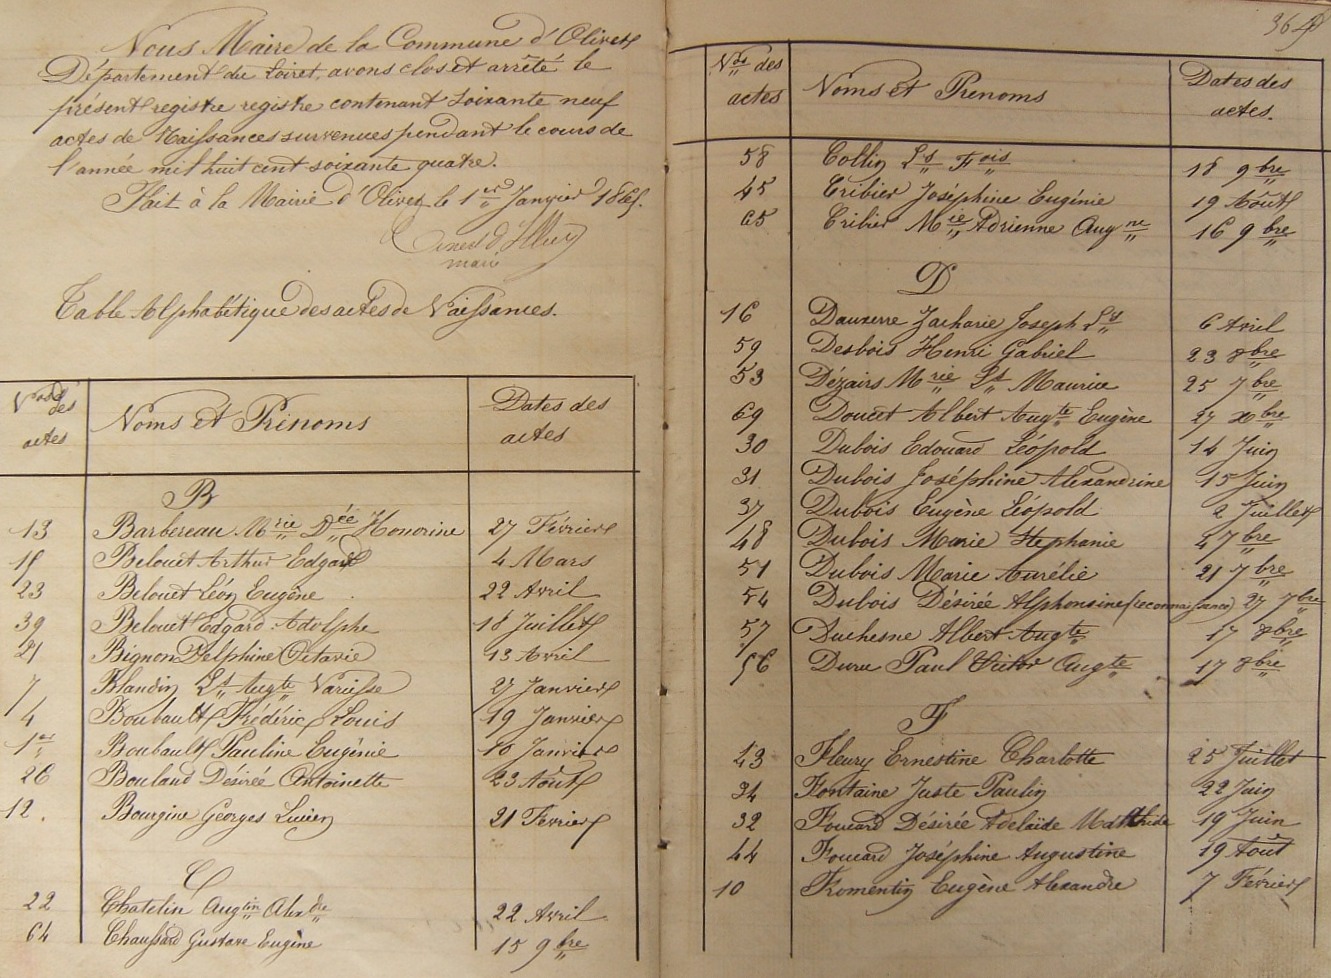 Nous Maire de la Commune d'Olivet
Département du Loiret, avons clos et arrêté le
présent registre registre contenant soixante neuf
actes de Naissances survenues pendant le cours de
l'année mil huit cent soixante quatre.
Fait à la Mairie d'Olivet le 1er Janvier 1865.
maire
Table Alphabétique des actes de Naissances.
Nos des actes Noms et Prénoms Dates des actes
B
13 Barbereau Mrie Dée Honorine 27 Février
18 Belouet Arthur Edgard 4 Mars
23 Belouet Léon Eugène 22 Avril
39 Belouet Edgard Adolphe 18 Juillet
21 Bignon Delphine Octavie 13 Avril
7 Blandin Ls Augte 27 Janvier
4 Boubault Frédéric Louis 19 Janvier
1er Boubault Pauline Eugénie 10 Janvier
26 Bouland Désirée Antoinette 23 Août
12. Bourgine Georges Lucien 21 Février
C
22 Chatelin Augtin Alexdre 22 Avril
64 Chaussard Gustave Eugène 15 9bre
364
Nos des actes Noms et Prénoms Dates des actes.
58 Collin Ls Fois 18 9bre
45 Cribier Joséphine Eugénie 19 Août
65 Cribier Mie Adrienne Augne 16 9bre
D
16 Dauxerre Zacharie Joseph Ls 6 Avril
59 Desbois Henri Gabriel 23 8bre
53 Dézairs Mrie Ls Maurice 25 7bre
69 Doucet Albert Augte Eugène 27 xbre
30 Dubois Edouard Léopold 14 Juin
31 Dubois Joséphine Alexandrine 15 Juin
37 Dubois Eugène Léopold 2 Juillet
48 Dubois Marie Stephanie 4 7bre
51 Dubois Marie Aurélie 21 7bre
54 Dubois Désirée Alphonsine (reconnaissance) 27 7bre
57 Duchesne Albert Augte 17 8bre
56 Duru Paul Victor Augte 17 8bre
F
43 Fleury Ernestine Charlotte 25 Juillet
34 Fontaine Juste Paulin 22 Juin
32 Foucard Désirée Adelaïde Mathilde 19 Juin
44 Foucard Joséphine Augustine 19 Août
10 Fromentin Eugène Alexandre 7 Février